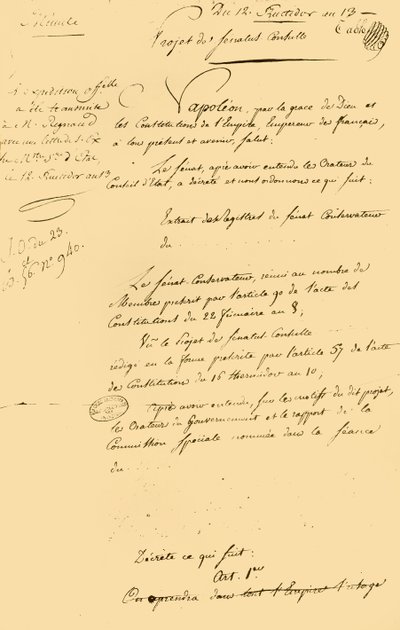 Minute
Du 12 Fructidor an 13
Projet de Senatus Consulte
L'expédition officielle
a été transmise
à M. Regnaud
avec une lettre de S. Ex
le Mtre Sre d'Etat
le 12 Fructidor an 13
du 23.
nº 940.
Napoléon, par la grace de Dieu et
les Constitutions de l'Empire, Empereur des français,
à tous présent et avenir, Salut:
Le Sénat, après avoir entendu les Orateurs du
Conseil d'Etat, a décrété et nous ordonnons ce qui suit:
Extrait des registres du Sénat Conservateur
du . . . . . .
Le Sénat Conservateur, réuni au nombre de
Membres préscrit par l'article 90 de l'acte des
Constitutions du 22 frimaire an 8;
Vu le Projet de Senatus Consulte
rédigé en la forme préscrite par l'article 57 de l'acte
de Constitutions du 16 thermidor an 10;
Après avoir entendu, sur les motifs du dit projet,
les Orateurs du Gouvernement et le rapport de la
Commission Spéciale nommée dans la séance
du . . . .
Décrète ce qui suit:
Art. 1er
On reprendra dans tout l'Empire l'usage